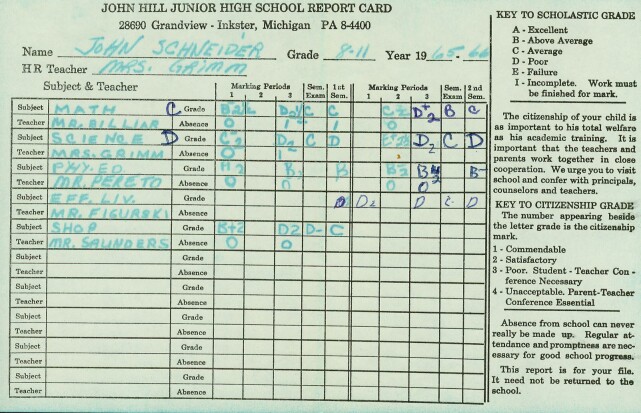 JOHN HILL JUNIOR HIGH SCHOOL REPORT CARD
28690 Grandview - Inkster, Michigan PA 8-4400
Name JOHN SCHNEIDER Grade 8-11 Year 1965-66
HR Teacher MRS. GRIMM
Subject & Teacher Marking Periods Sem. 1st Marking Periods Sem. 2nd
1 2 3 Exam Sem. 1 2 3 Exam Sem.
Subject MATH C Grade C C D+2 B C
Teacher MR. BILLIAR Absence 0 1 1 0
Subject SCIENCE D Grade C-2 D2 C D D2 C D
Teacher MRS. GRIMM Absence 0 1
Subject PHY. ED Grade B B-
Teacher MR. PERETO Absence 0 0 0 0
Subject EFF. LIV. Grade D D2 D D
Teacher MR. FIGURSKI Absence
Subject SHOP Grade B+2 D2 D- C
Teacher MR. SAUNDERS Absence 0 0
Subject Grade
Teacher Absence
Subject Grade
Teacher Absence
Subject Grade
Teacher Absence
Subject Grade
Teacher Absence
Subject Grade
Teacher Absence
KEY TO SCHOLASTIC GRADE
A - Excellent
B - Above Average
C - Average
D - Poor
E - Failure
I - Incomplete. Work must
be finished for mark.
The citizenship of your child is
as important to his total welfare
as his academic training. It is
important that the teachers and
parents work together in close
cooperation. We urge you to visit
school and confer with principals,
counselors and teachers.
KEY TO CITIZENSHIP GRADE
The number appearing beside
the letter grade is the citizenship
mark.
1 - Commendable
2 - Satisfactory
3 - Poor. Student - Teacher Con-
ference Necessary
4 - Unacceptable. Parent-Teacher
Conference Essential
Absence from school can never
really be made up. Regular at-
tendance and promptness are nec-
essary for good school progress.
This report is for your file.
It need not be returned to the
school.